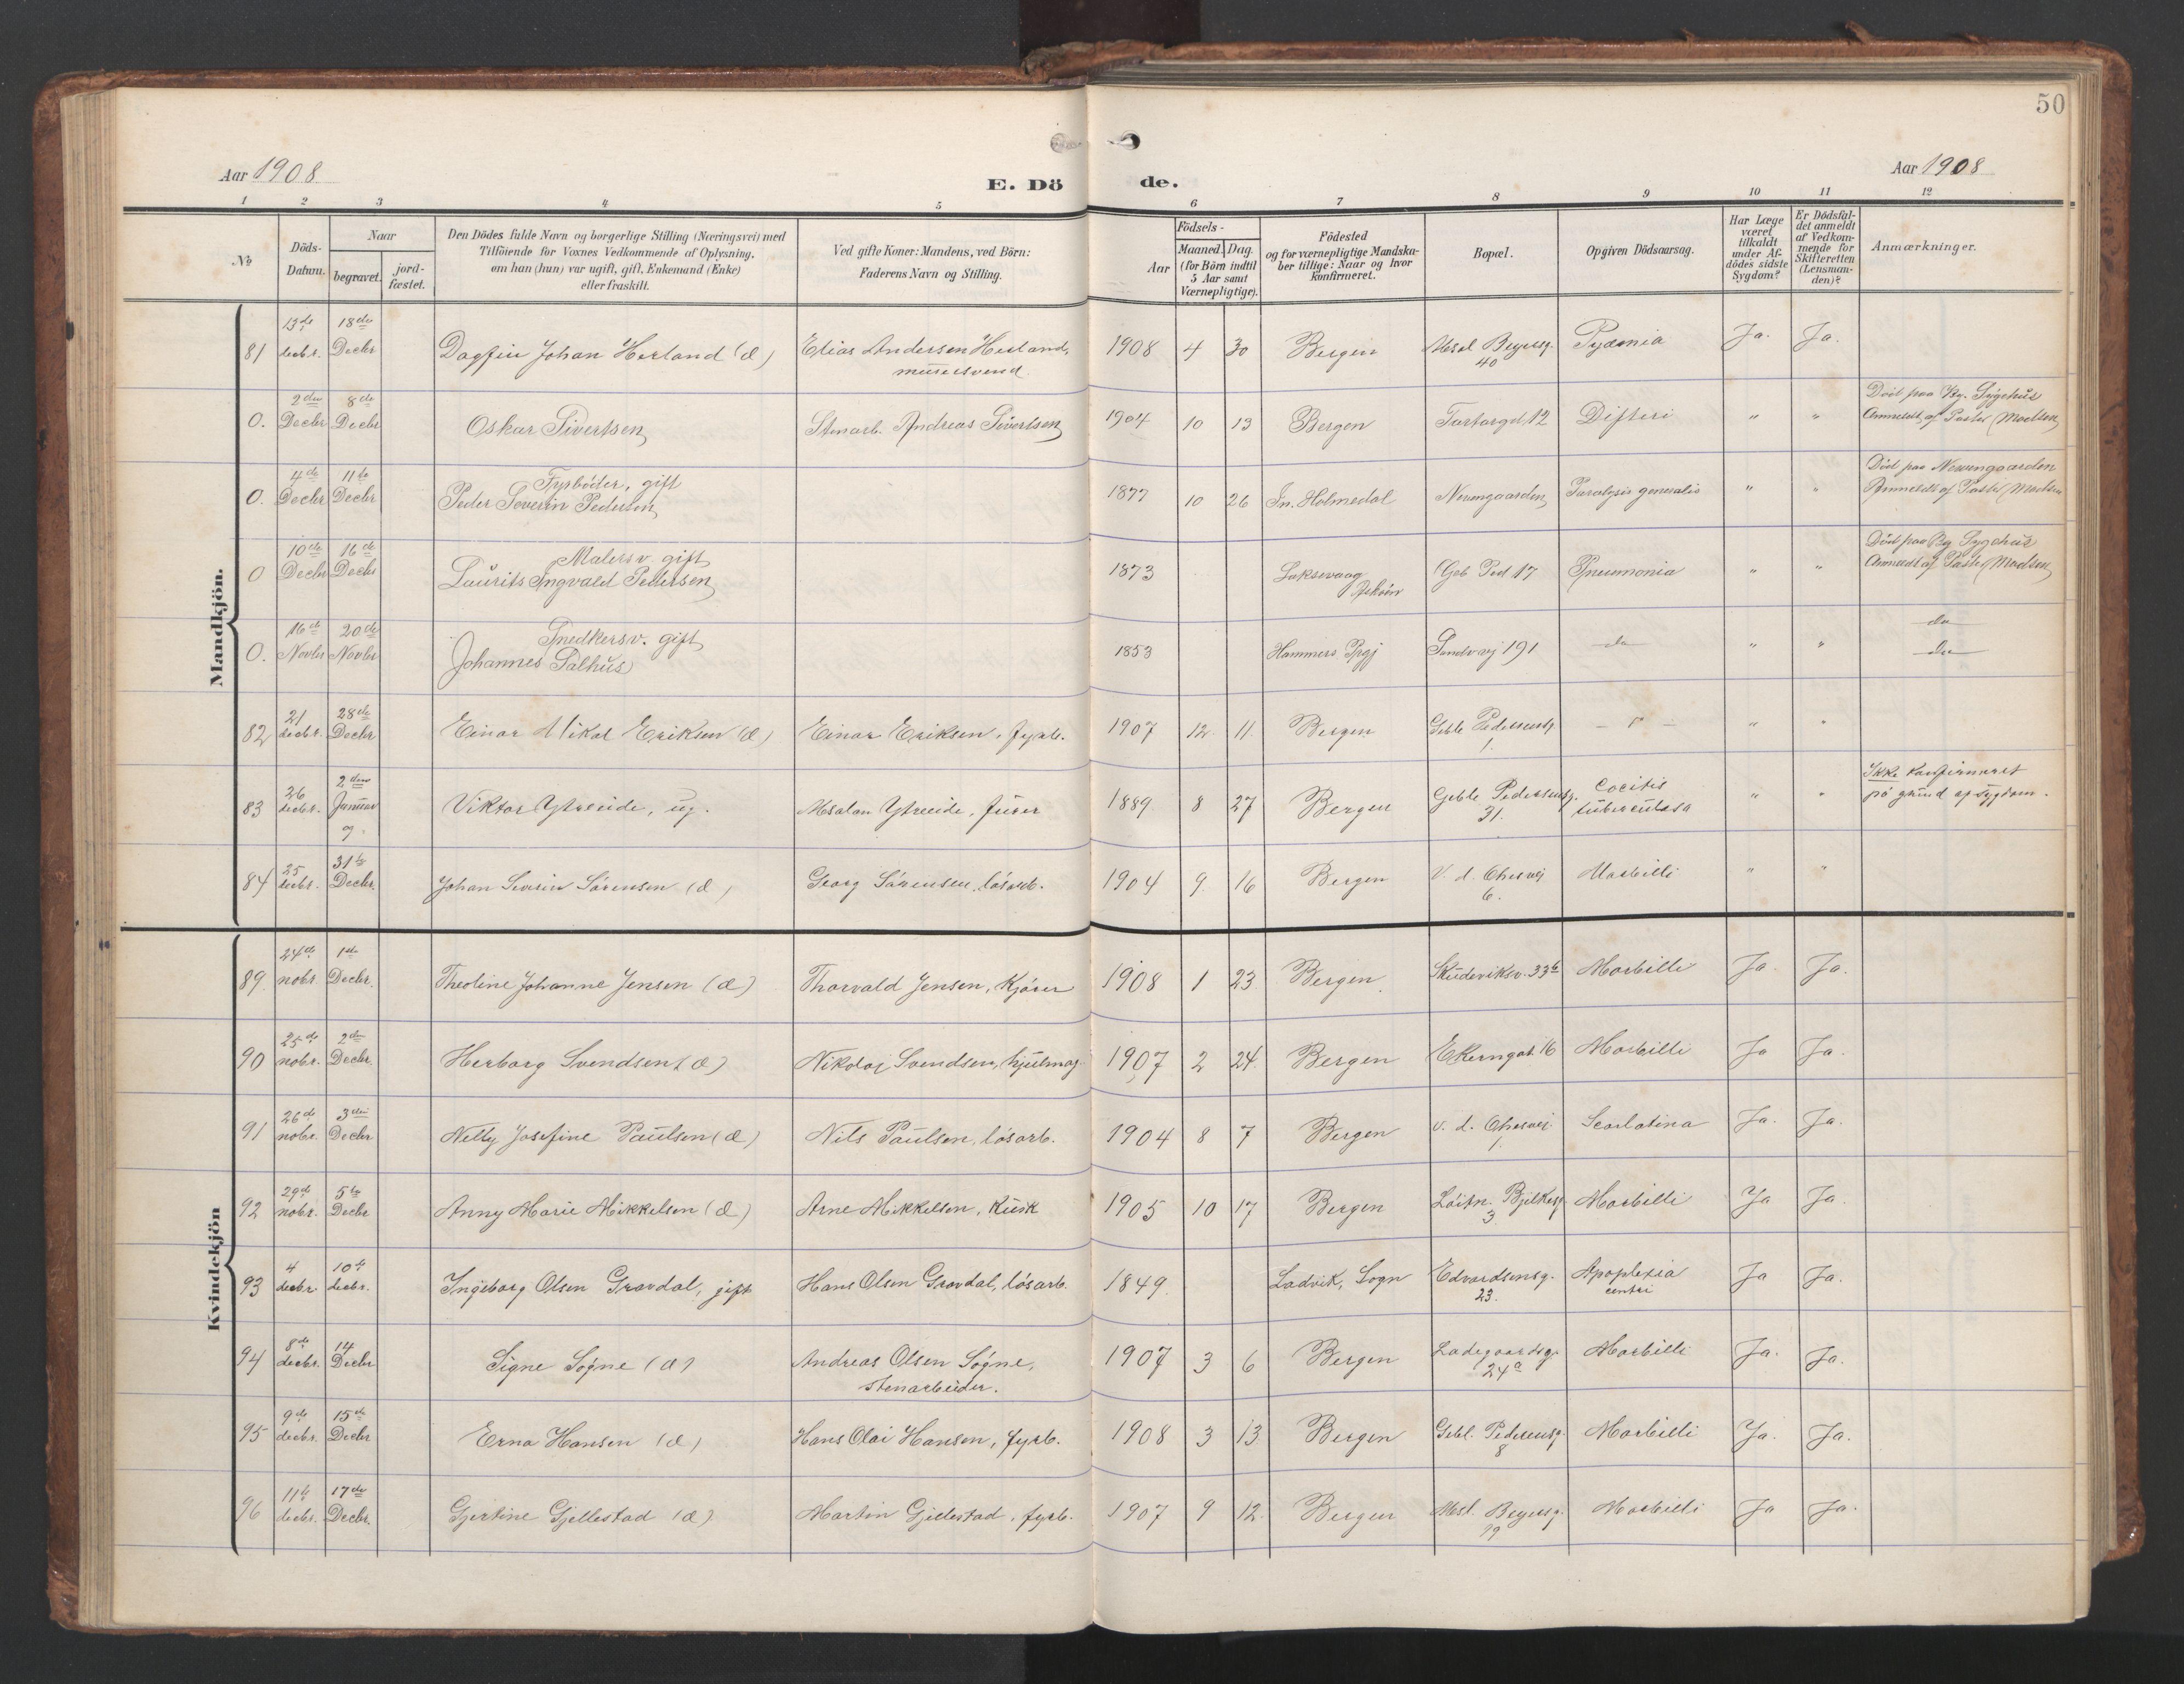 50
Aar 1908.
E. Dö de.
Aar 1908
1 2 3 4 5 6 7 8 9 10 11 12
No
Döds-Datum.
Naar
begravet.
jord-fæstet.
Den Dödes fulde Navn og borgerlige Stilling (Næringsvei) med
Tilföiende for Voxnes Vedkommende af Oplysning,
om han (hun) var ugift, gift, Enkemand (Enke)
eller fraskilt.
Ved gifte Koner: Mandens, ved Börn:
Faderens Navn og Stilling.
Födsels-
Aar
Maaned.
Dag.
(for Börn indtil
5 Aar samt
Værnepligtige).
Födested
og for værnepligtige Mandska-
ber tillige: Naar og hvor
konfirmeret.
Bopæl.
Opgiven Dödsaarsag.
Har Læge
været
tilkaldt
under Af-
dödes sidste
Sygdom?
Er Dödsfal-
det anmeldt
af Vedkom-
mende for
Skifteretten
(Lensman-
den)?
Anmærkninger.
Mandkjön.
81 13de decbr. 18de Decbr Dagfin Johan Herland (d) Elias Andersen Herland, murersvend 1908 4 30 Bergen Absal Beyersg. 40 Pyæmia Ja. Ja.
0. 2den Decbr 8de Decbr Oskar Sivertsen Stenarb. Andreas Sivertsen 1904 10 13 Bergen Tartargd 12 Difteri " " Död paa Bg. Sygehus Anmeldt af Pastor Madsen
0. 4de Decbr 11te Decbr Fyrböder, gift Peder Severin Pedersen 1877 10 26 In. Holmedal Neuengaarden Paralysis generalis " " Död paa Neuengaarden Anmeldt af Pastor Madsen
0 10de Decbr 16de Decbr Malersv. gift Laurits Ingvald Pedersen 1873 Laksevaag Askøen Geb Ped 17 Pneumonia " " Död paa Bg Sygehus Anmeldt af Pastor Madsen
0. 16de Novbr 20de Novbr Snedkersv. gift Johannes Salhus 1853 Hammers Prgj Sandvej 191 do " " do do
82 21 decbr. 28de Decbr Einar Mikal Eriksen (d) Einar Eriksen, fyrb. 1907 12 11. Bergen Geble Pedersensg. 1. – " – " "
83 26 decbr. 2den Januar 9. Viktor Ytreeide, ug. Absalon Ytreeide, furer 1889. 8 27 Bergen Geble Pedersensg. 31. Cocitis tuberculosa " " Ikke konfirmeret på grund af sygdom.
84 25 decbr. 31te Decbr. Johan Severin Sørensen (d) Georg Sørensen, løsarb. 1904 9. 16 Bergen V. d. Ohesvej 6. Morbilli " "
Kvindekjön
89 24de nobr. 1ste Decbr. Theoline Johanne Jensen (d) Thorvald Jensen, Kjører 1908 1 23 Bergen. Skudeviksv. 33b Morbilli Ja. Ja.
90 25de nobr. 2den Decbr. Herborg Svendsen (d) Nikolai Svendsen, hjulmag. 1907 2 24. Bergen Ekerngat. 16 Morbilli Ja Ja.
91 26de nobr. 3die Decbr Nelly Josefine Paulsen (d) Nils Paulsen, løsarb. 1904 8 7 Bergen v. d. Ohesvei 1. Scarlatina Ja. Ja.
92 29de nobr. 5te Decbr Anny Marie Mikkelsen (d) Arne Mikkelsen, Kusk 1905 10 17 Bergen Løitn. Bjelkesg 3. Morbilli Ja Ja.
93 4 decbr. 10de decbr. Ingeborg Olsen Gravdal, gift Hans Olsen Gravdal, løsarb. 1849. Ladvik, Sogn Edvardsensg. 23. Apoplexia Ja Ja.
94 8de decbr. 14 Decbr Signe Sogne (d) Andreas Olsen Sogne, stenarbeider. 1907 3 6 Bergen Ladegaardsg. 24a Morbilli Ja. Ja.
95 9de decbr. 15de Decbr Erna Hansen (d) Hans Olai Hansen, fyrb. 1908 3 13 Bergen Gebl. Pedersensg. 8 Morbilli Ja. Ja.
96 11te decbr. 17de Decbr. Gjertine Gjellestad (d) Martin Gjellestad, fyrb. 1907 9 12. Bergen Absl. Beyersg. 19 Morbilli Ja Ja.